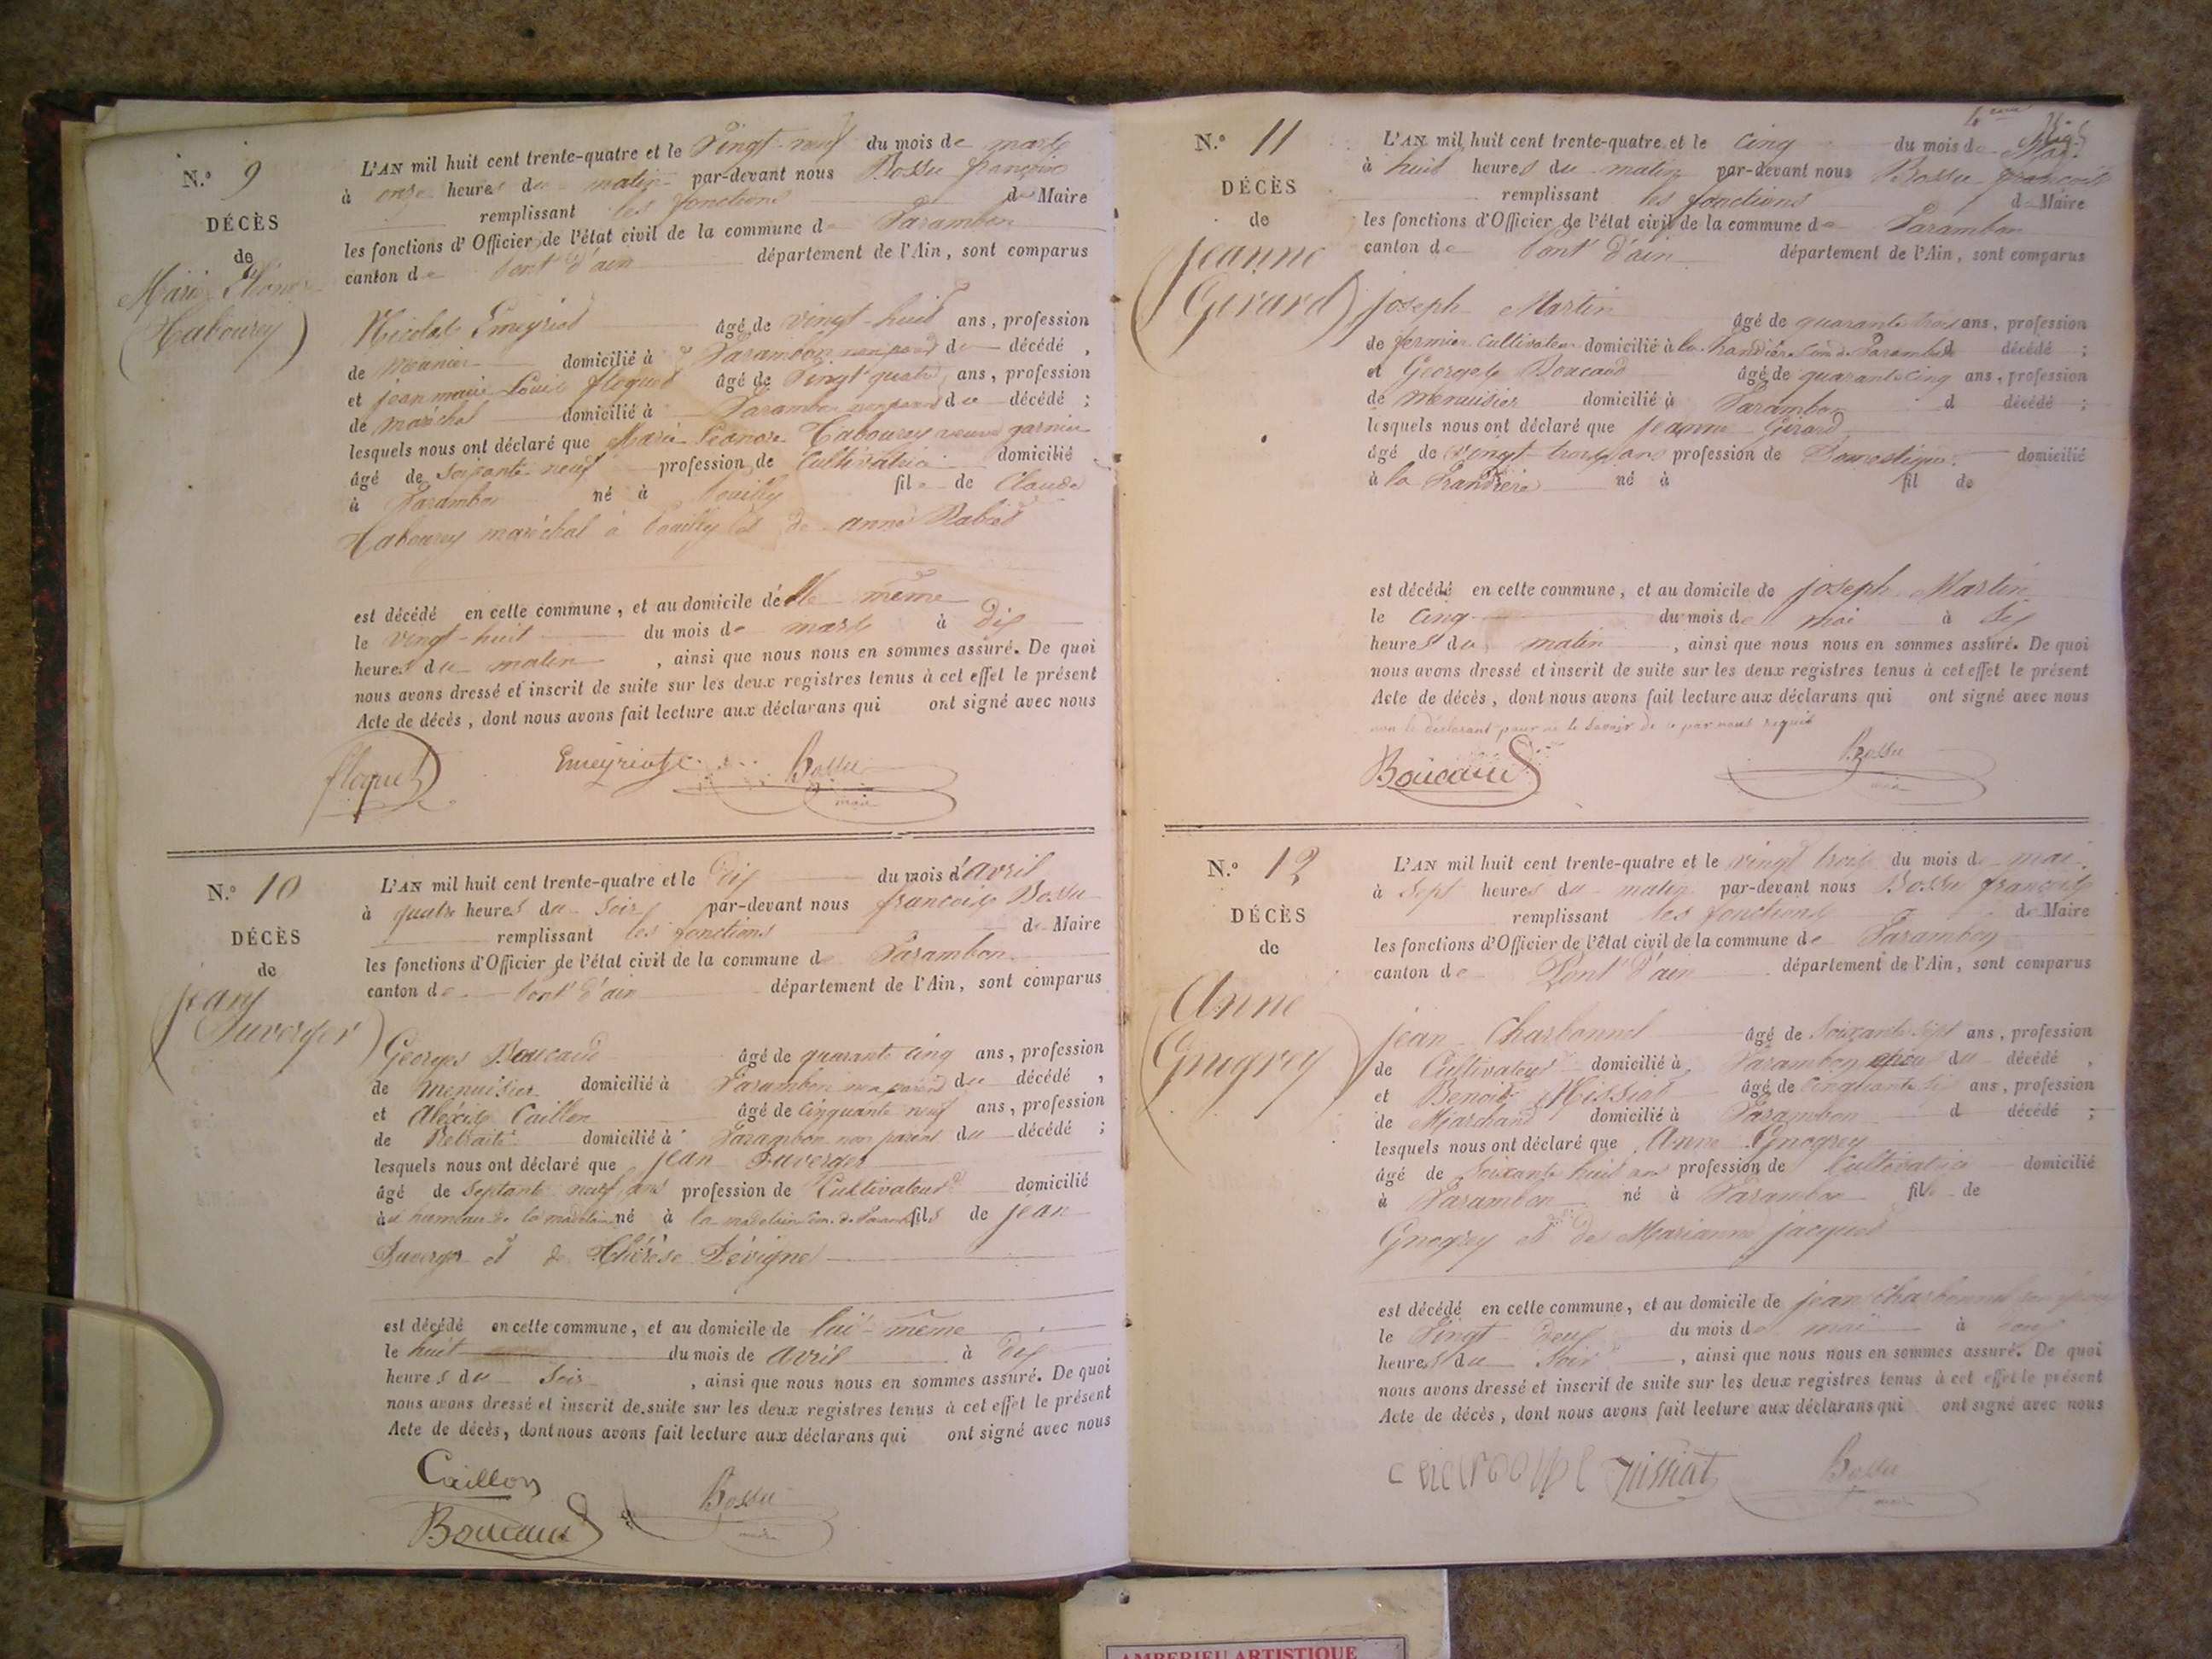 N.º 9
DÉCÈS
de
Marie Léonore
Tabourey
L'AN mil huit cent trente-quatre et le Vingt-neuf du mois de mars
à onze heures du matin par-devant nous Bossu françois
remplissant les fonctions de Maire
les fonctions d'Officier de l'état civil de la commune de Varambon
canton de Pont d'ain département de l'Ain, sont comparus
Nicolas Emeyriat âgé de vingt-huit ans, profession
de Meunier domicilié à Varambon non parent de décédé,
et jean marie Louis floquet âgé de Vingt quatre ans, profession
de maréchal domicilié à Varambon non parent de décédé;
lesquels nous ont déclaré que Marie Léonore Tabourey veuve garnier
âgé de soixante neuf profession de Cultivatrice domicilié
à Varambon né à Pouilly fille de Claude
Tabourey maréchal à Pouilly et de anne
est décédé en cette commune, et au domicile d'elle même
le vingt-huit du mois de mars à dix
heures du matin, ainsi que nous nous en sommes assuré. De quoi
nous avons dressé et inscrit de suite sur les deux registres tenus à cet effet le présent
Acte de décès, dont nous avons fait lecture aux déclarans qui ont signé avec nous
floquet Emeyriat Bossu
maire
N.º 10
DÉCÈS
de
jean
Duverger
L'AN mil huit cent trente-quatre et le Dix du mois d'avril
à quatre heures du Soir par-devant nous françois Bossu
remplissant les fonctions de Maire
les fonctions d'Officier de l'état civil de la commune de Varambon
canton de Pont d'ain département de l'Ain, sont comparus
Georges Boucaud âgé de quarante cinq ans, profession
de Menuisier domicilié à Varambon non parent du décédé,
et Aléxis Caillon âgé de cinquante neuf ans, profession
de Retraité domicilié à Varambon non parent du décédé;
lesquels nous ont déclaré que jean Duverger
âgé de septante neuf ans profession de Cultivateur domicilié
au hameau de la madelaine né à la madelaine Com. de Varambon fils de jean
Duverger et de Thérèse Dévigne
est décédé en cette commune, et au domicile de lui-même
le huit du mois de avril à dix
heures du Soir, ainsi que nous nous en sommes assuré. De quoi
nous avons dressé et inscrit de suite sur les deux registres tenus à cet effet le présent
Acte de décès, dont nous avons fait lecture aux déclarans qui ont signé avec nous
Caillon
Boucaud Bossu
maire
N.º 11
DÉCÈS
de
jeanne
Girard
L'AN mil huit cent trente-quatre et le Cinq du mois de Mai
à huit heures du matin par-devant nous Bossu françois
remplissant les fonctions de Maire
les fonctions d'Officier de l'état civil de la commune de Varambon
canton de Pont d'ain département de l'Ain, sont comparus
joseph Martin âgé de quarante trois ans, profession
de fermier Cultivateur domicilié à la Com. de Varambon d décédé;
et Georges Boucaud âgé de quarante cinq ans, profession
de Menuisier domicilié à Varambon d décédé;
lesquels nous ont déclaré que jeanne Girard
âgé de Vingt-trois ans profession de Domestique domicilié
à la né à fil de
est décédé en cette commune, et au domicile de joseph Martin
le Cinq du mois de mai à Six
heures du matin, ainsi que nous nous en sommes assuré. De quoi
nous avons dressé et inscrit de suite sur les deux registres tenus à cet effet le présent
Acte de décès, dont nous avons fait lecture aux déclarans qui ont signé avec nous
non le déclarant pour ne le savoir de ce par nous requis
Boucaud Bossu
maire
N.º 12
DÉCÈS
de
Anne
Gnogrey
L'AN mil huit cent trente-quatre et le vingt trois du mois de mai
à Sept heures du matin par-devant nous Bossu françois
remplissant les fonctions de Maire
les fonctions d'Officier de l'état civil de la commune de Varambon
canton de Pont d'ain département de l'Ain, sont comparus
jean Charbonnet âgé de Soixante Sept ans, profession
de Cultivateur domicilié à Varambon époux du décédé,
et Benoit Missiat âgé de Cinquante six ans, profession
de Marchand domicilié à Varambon d décédé;
lesquels nous ont déclaré que Anne Gnogrey
âgé de Soixante huit ans profession de Cultivatrice domicilié
à Varambon né à Varambon fille de
Gnogrey et de Marianne jacquet
est décédé en cette commune, et au domicile de jean Charbonnet son époux
le Vingt Deux du mois de mai à
heures du Soir, ainsi que nous nous en sommes assuré. De quoi
nous avons dressé et inscrit de suite sur les deux registres tenus à cet effet le présent
Acte de décès, dont nous avons fait lecture aux déclarans qui ont signé avec nous
missiat Bossu
maire
AMBERIEU ARTISTIQUE